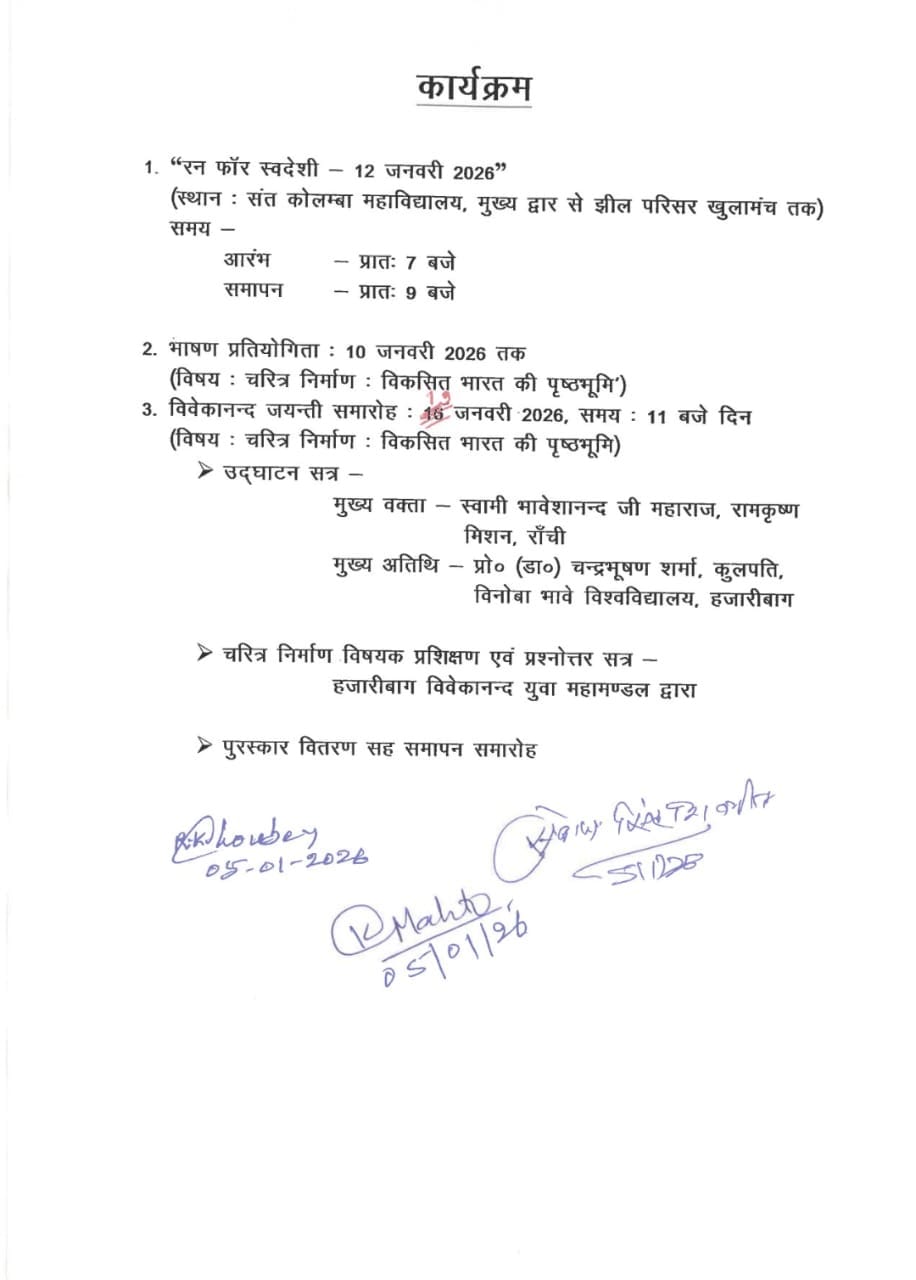 कार्यक्रम
1. “रन फॉर स्वदेशी – 12 जनवरी 2026”
(स्थान : संत कोलम्बा महाविद्यालय, मुख्य द्वार से झील परिसर खुलामंच तक)
समय –
आरंभ – प्रातः 7 बजे
समापन – प्रातः 9 बजे
2. भाषण प्रतियोगिता : 10 जनवरी 2026 तक
(विषय : चरित्र निर्माण : विकसित भारत की पृष्ठभूमि’)
19
3. विवेकानन्द जयन्ती समारोह : जनवरी 2026, समय : 11 बजे दिन
(विषय : चरित्र निर्माण : विकसित भारत की पृष्ठभूमि)
➢ उद्घाटन सत्र –
मुख्य वक्ता – स्वामी भावेशानन्द जी महाराज, रामकृष्ण
मिशन, राँची
मुख्य अतिथि – प्रो० (डा०) चन्द्रभूषण शर्मा, कुलपति,
विनोबा भावे विश्वविद्यालय, हजारीबाग
➢ चरित्र निर्माण विषयक प्रशिक्षण एवं प्रश्नोत्तर सत्र –
हजारीबाग विवेकानन्द युवा महामण्डल द्वारा
➢ पुरस्कार वितरण सह समापन समारोह
05-01-2026
K Mahto
05/01/26